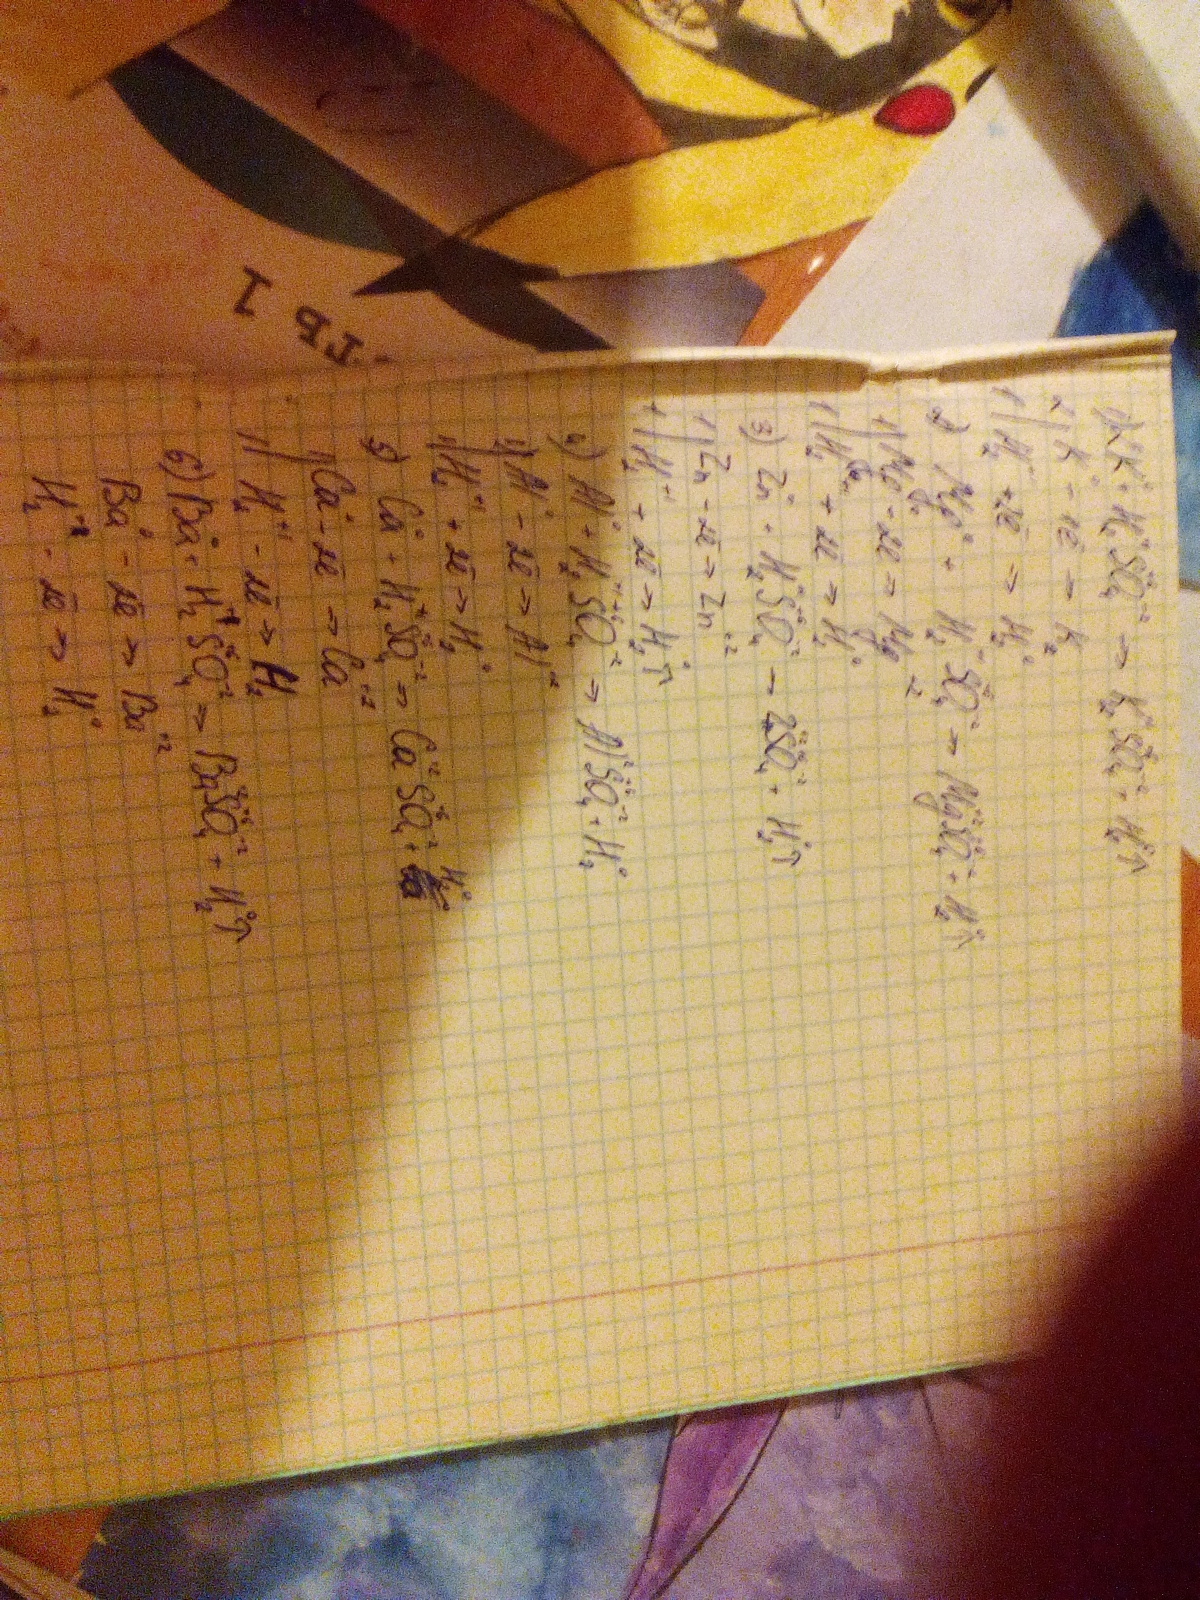 ть 1
1) 2K⁰ + H₂⁺¹S⁺⁶O₄⁻² → K₂⁺¹S⁺⁶O₄⁻² + H₂⁰↑
2| K⁰ - 1ē → K₂
1| H₂⁺¹ + 2ē → H₂⁰
2) Mg⁰ + H₂⁺¹S⁺⁶O₄⁻² → Mg⁺²S⁺⁶O₄⁻² + H₂⁰↑
1| Mg⁰ - 2ē → Mg⁺²
1| H₂⁺¹ + 2ē → H₂⁰
3) Zn⁰ + H₂⁺¹S⁺⁶O₄⁻² → Zn⁺²S⁺⁶O₄⁻² + H₂⁰↑
1| Zn - 2ē → Zn⁺²
1| H₂⁺¹ + 2ē → H₂⁰↑
4) Al⁰ + H₂⁺¹S⁺⁶O₄⁻² → Al⁺²S⁺⁶O₄⁻² + H₂⁰
1| Al⁰ - 2ē → Al⁺²
1| H₂⁺¹ + 2ē → H₂⁰
5) Ca⁰ + H₂⁺¹S⁺⁶O₄⁻² → Ca⁺²S⁺⁶O₄⁻² + H₂⁰
1| Ca⁰ - 2ē → Ca⁺²
1| H₂⁺¹ - 2ē → H₂
6) Ba⁰ + H₂⁺¹S⁺⁶O₄⁻² → Ba⁺²S⁺⁶O₄⁻² + H₂⁰↑
Ba⁰ - 2ē → Ba⁺²
H₂⁺² - 2ē → H₂⁰